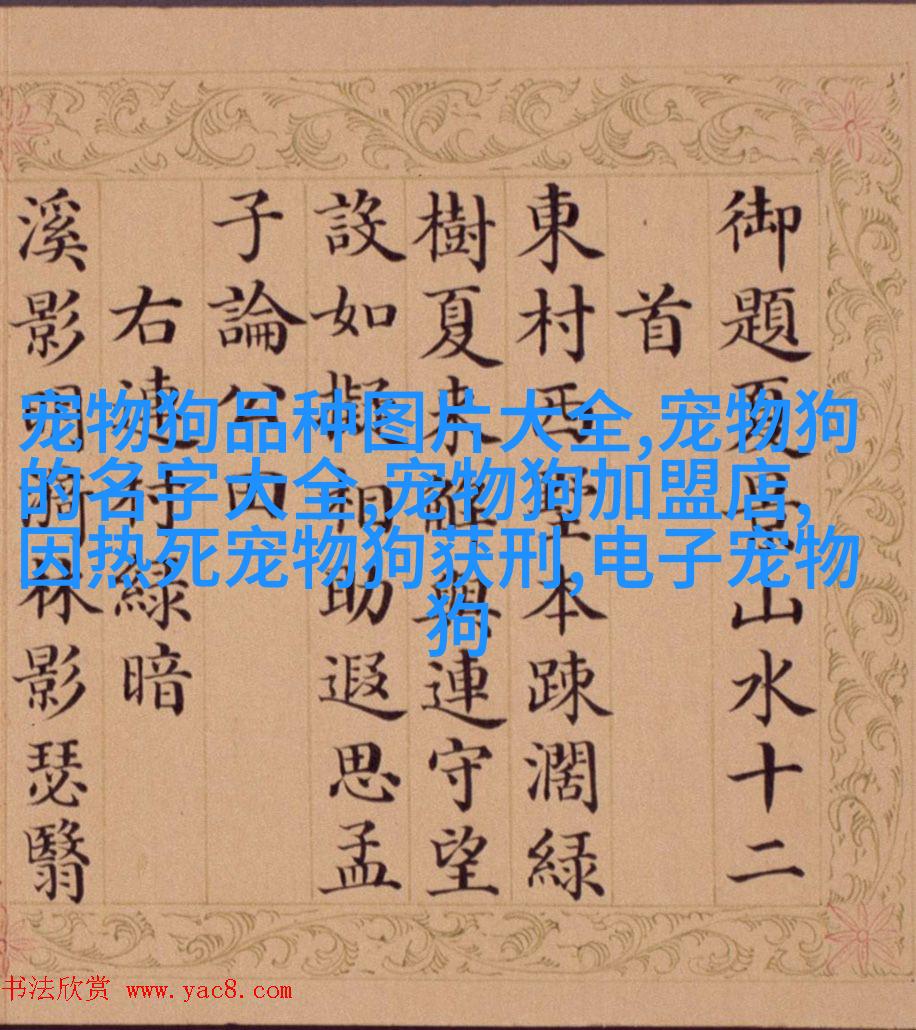 御題夏景山水十二
首
東村西墅本踈濶綠
樹夏來與連守望
設如擬相助遐思孟
子論公田
右連村綠暗
溪影林影瑟翳
宠物狗品种图片大全,宠物狗
的名字大全,宠物狗加盟店,
因热死宠物狗获刑,电子宠物
狗
书法欣赏 www.yac8.com